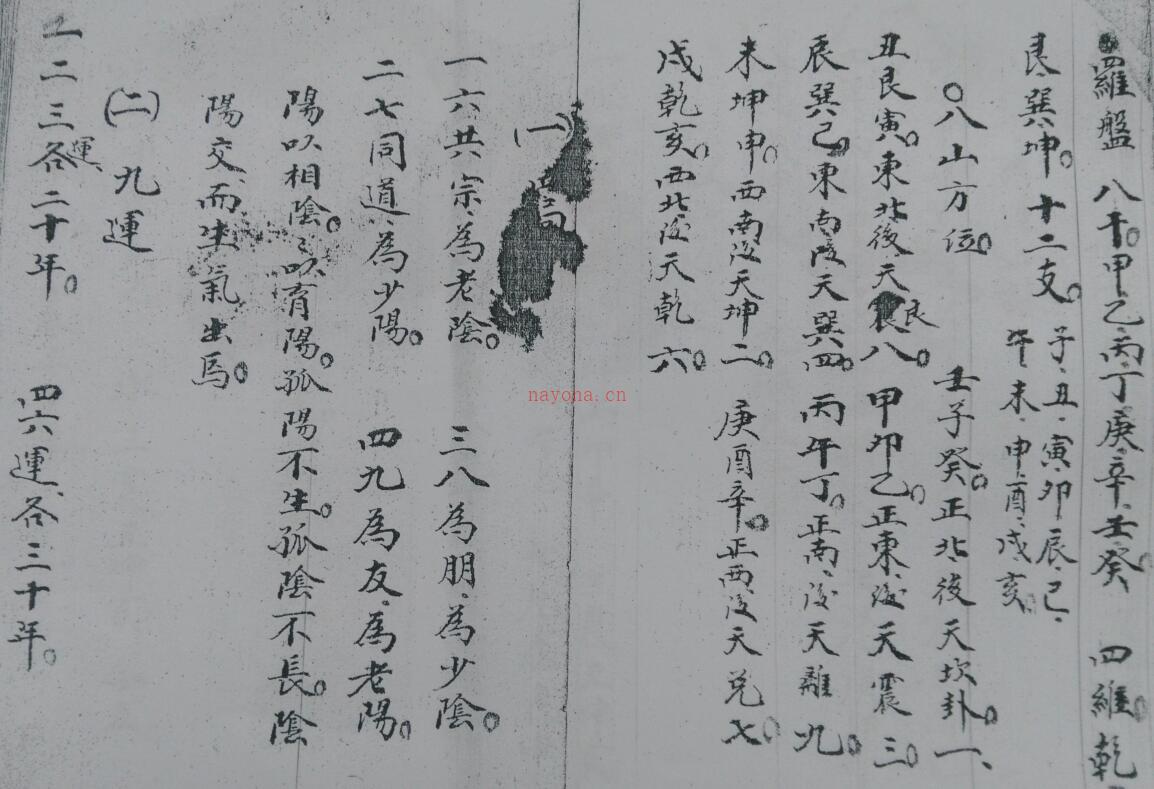 四羅盤　八干。甲乙丙丁庚辛壬癸　四維。乾
艮巽坤。十二支。子、丑、寅卯辰、巳、
午、未、申、酉、戌亥
○八山方位。　壬子癸。正北後天坎卦。一、
丑艮寅。東北後天艮八。甲卯乙。正東、後天震三。
辰巽巳。東南後天巽四。丙午丁。正南、後天離九。
未坤申。西南後天坤二。庚酉辛。正西、後天兌七。
戌乾亥。西北後天乾六。
(一)
一六共宗、為老陰。　三八為朋、為少陰。
二七同道、為少陽。　四九為友、為老陽。
陽以相陰。陰以育陽。孤陽不生。孤陰不長。陰
陽交而生氣出焉。
(二)九運
一二三運、各二十年。　四六運、各三十年。
nayona.cn